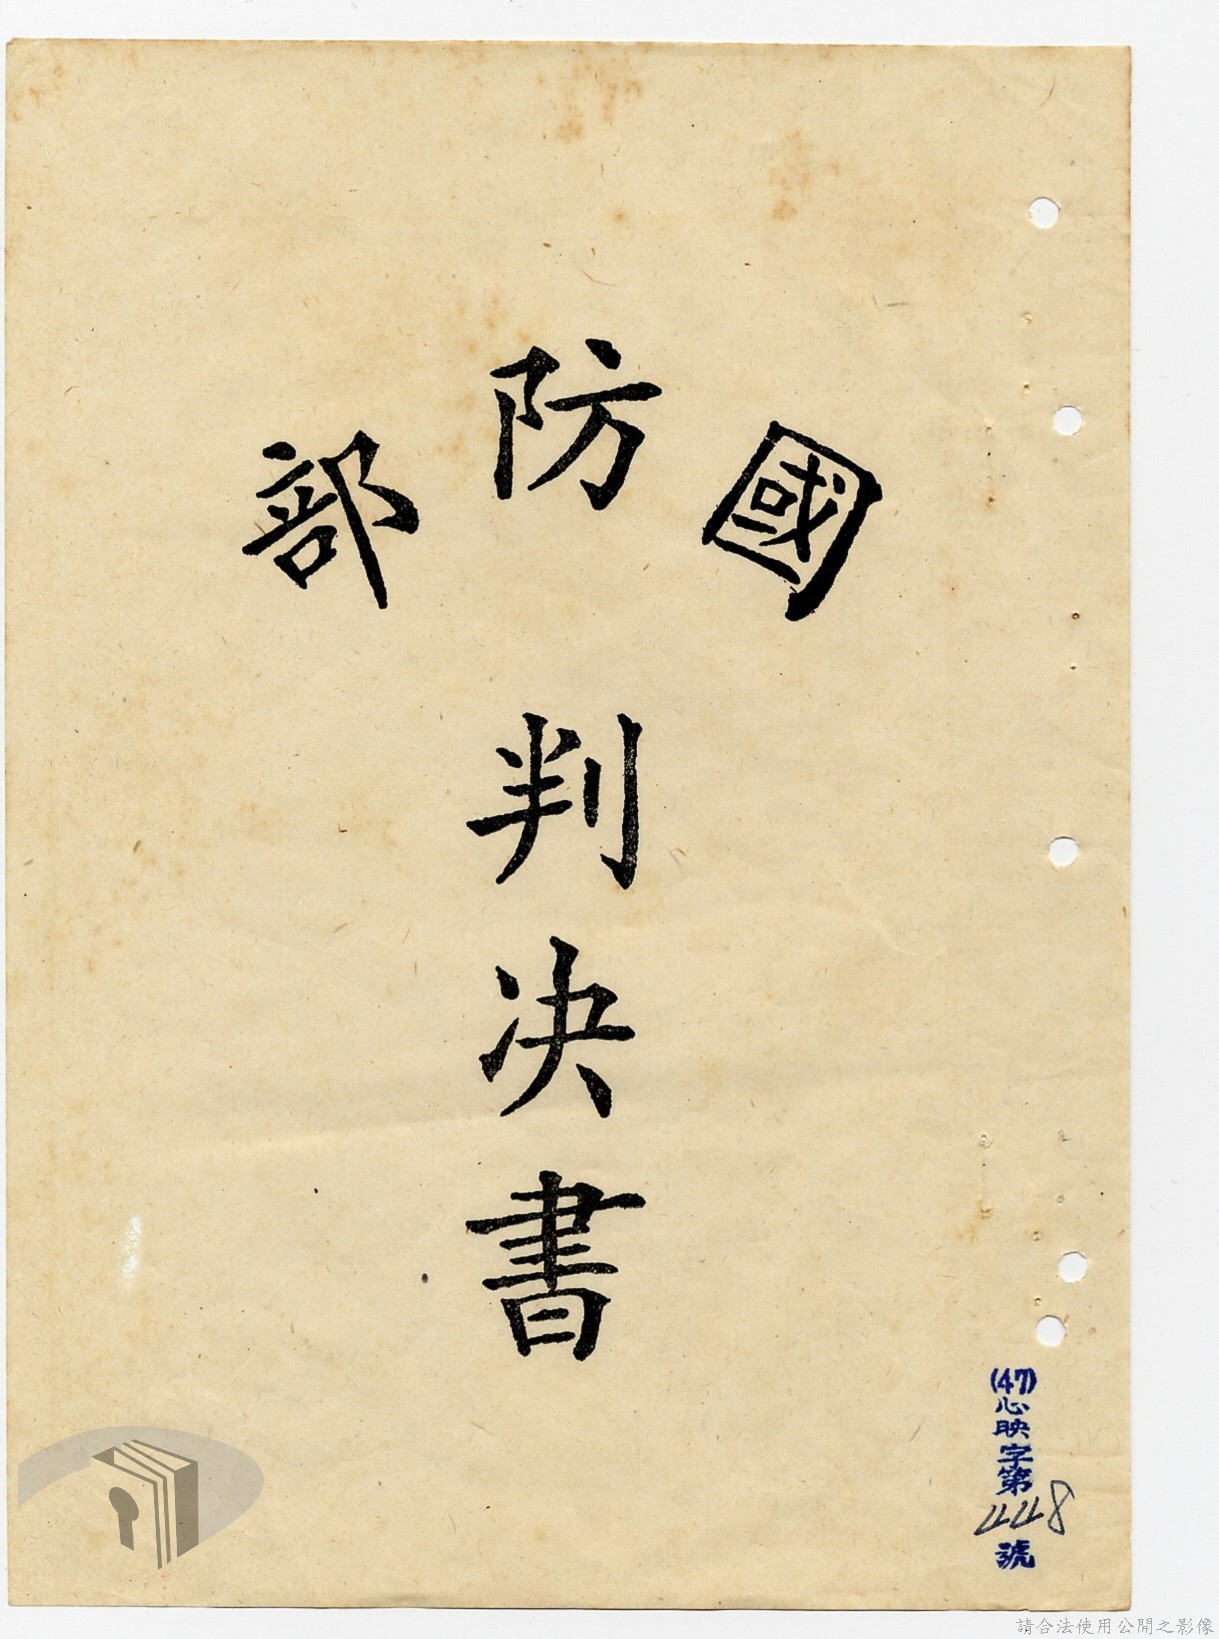 國防部
判决書
(47)心映字第448號
請合法使用公開之影像